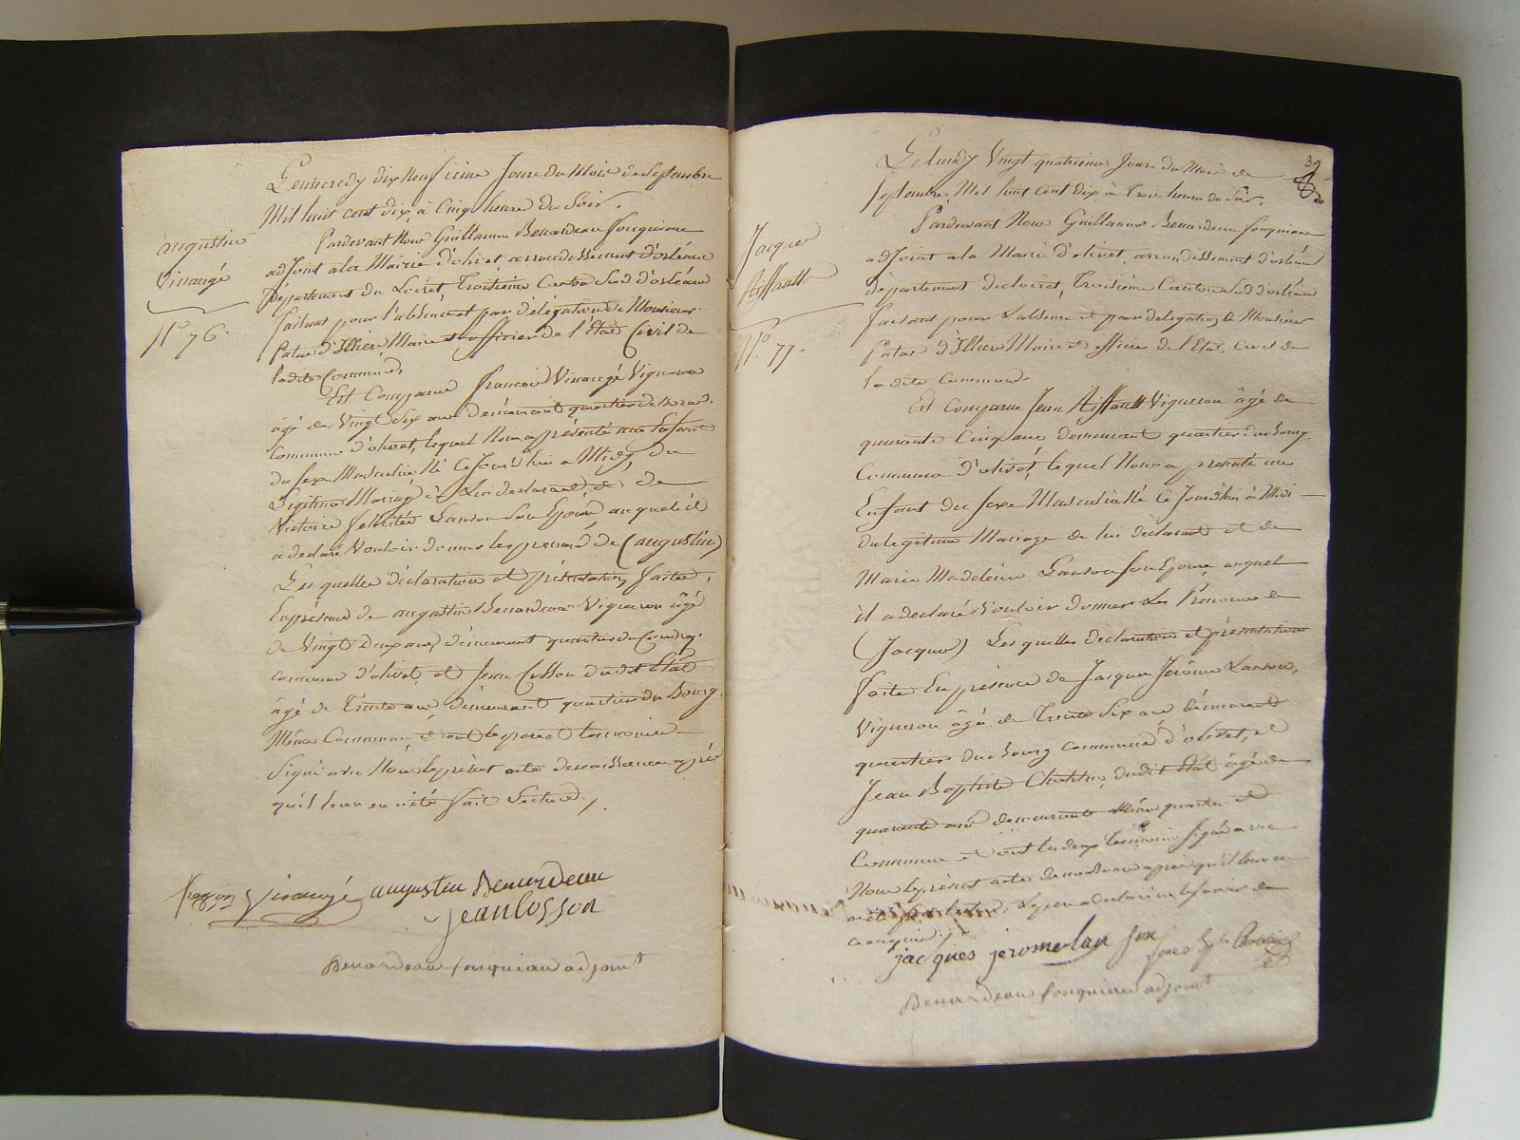 Le mercredy dix neufvieme Jour du Mois de Septembre
Mil huit cent dix, à Cinq heure du Soir.
augustin
Vinaugé
N° 76.
Pardevant Nous Guillaume Benardeau fouquiau
adjoint a la Mairie d'olivet arrondissement d'orleans
Département du Loiret, Troisieme Canton Sud d'orléans
faisant pour l'absence et par délégation de Monsieur
Patas d'Illiers Maire et officier de l'Etat Civil de
ladite Commune,
Est Comparu francois Vinaugé Vigneron
âgé de Vingt Six ans demeurant quartier du
Commune d'olivet, lequel Nous a présenté un Enfant
du Sexe Masculin Né Ce Jourd'hui a Midy, du
Légitime Mariage de Lui declarant, et de
Victoire felicitée Lanson Son Epouse auquel il
a declaré Vouloir donner les prenoms de (augustin)
Les quelles déclaration et présentation faites,
En présence de augustin Benardeau Vigneron âgé
de Vingt Deux ans, demeurant quartier du
commune d'olivet, et Jean Cosson dudit Etat
âgé de Trente ans, demeurant quartier du Bourg
Même Commune, et ont le pere et temoins
Signé avec Nous le présent acte de naissance après
qu'il leur en a été fait Lecture./.
françois Vinaugé augustin Benardeau
Jean Cosson
Benardeau fouquiau adjoint
39
Le lundy Vingt quatrieme Jour du Mois de
Septembre Mil huit cent dix à trois heures du Soir.
Jacques
Riffault
N° 77.
Pardevant Nous Guillaume Benardeau fouquiau
adjoint a la Mairie d'olivet, arrondissement d'orléans
département du loiret, Troisième Canton Sud d'orléans
faisant pour L'absence et par delegation de Monsieur
Patas d'Illiers Maire et officier de l'Etat Civil de
ladite Commune.
Est Comparu Jean Riffault Vigneron âgé de
quarante Cinq ans demeurant quartier du bourg
Commune d'olivet, lequel Nous a presenté un
Enfant du Sexe Masculin Né Ce Jourdhui à Midi
du legitime Mariage de lui declarant et de
Marie Madeleine Lanson son Epouse auquel
il a declaré Vouloir donner Les Prenoms de
(Jacques) Les quelles declaration et présentation
faite En présence de Jacques Jerôme Lanson,
Vigneron âgé de Trente Six ans demeurant
quartier du bourg commune d'olivet, et
Jean Baptiste dudit Etat âgé de
quarante ans demeurant Même quartier et
Commune et ont les deux temoins Signé avec
Nous le présent acte de naissance après qu'il leur en
a été fait lecture, le pere a declaré ne le Savoir de
ce enquis ./.
jacques jerome lan son
Benardeau fouquiau adjoint